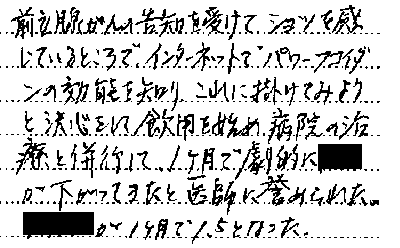 前立腺がんの告知を受けて、ショックを感
じているところで、インターネットで「パワーフコイダ
ンの効能を知り、これに掛けてみよう
と決心をして飲用を始め、病院の治
療と併行して、1ヶ月で劇的に
が下がってきたと医師に誉められた。
が1ヶ月で1.5となった。